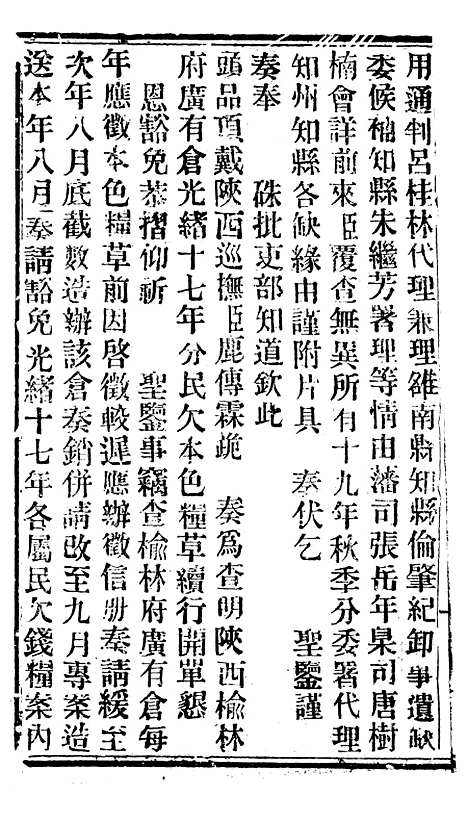 用通判呂桂林代理兼理雒南縣知縣倫肇紀卸事遺缺
委候補知縣朱繼芳署理等情由藩司張岳年臬司唐樹
楠會詳前來臣覆查無異所有十九年秋季分委署代理
知州知縣各缺緣由謹附片具 奏伏乞 聖鑒謹
奏奉 硃批吏部知道欽此
頭品頂戴陝西巡撫臣鹿傳霖跪 奏爲查明陝西榆林
府廣有倉光緒十七年分民欠本色糧草續行開單懇
恩豁免恭摺仰祈 聖鑒事竊查榆林府廣有倉每
年應徵本色糧草前因啓徵較遲應辦徵信册奏請緩至
次年八月底截數造辦該倉奏銷併請改至九月專案造
送本年八月奏請豁免光緒十七年各屬民欠錢糧案內